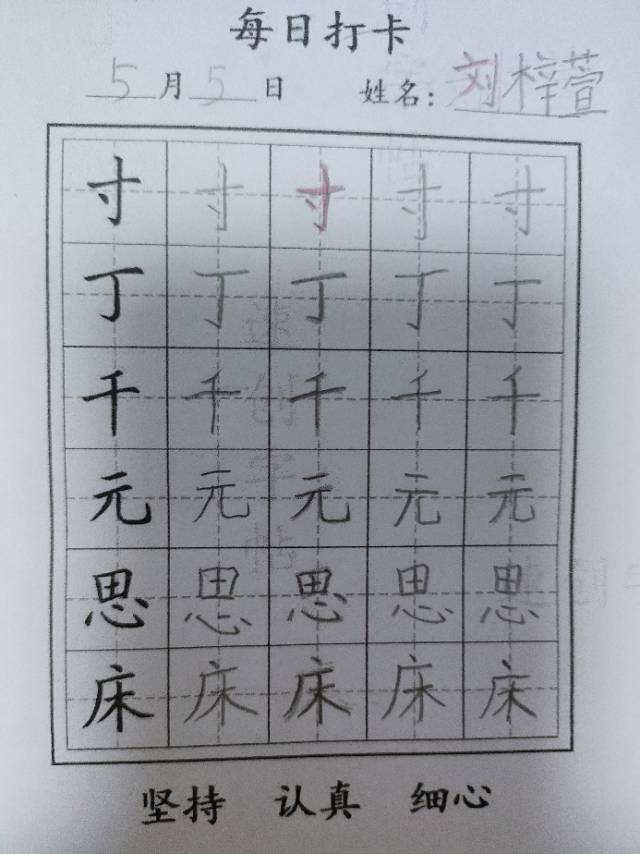 每日打卡
5月5日 姓名：刘梓萱
寸 寸 寸 寸 寸
丁 丁 丁 丁 丁
千 千 千 千 千
元 元 元 元 元
思 思 思 思 思
床 床 床 床 床
坚持 认真 细心